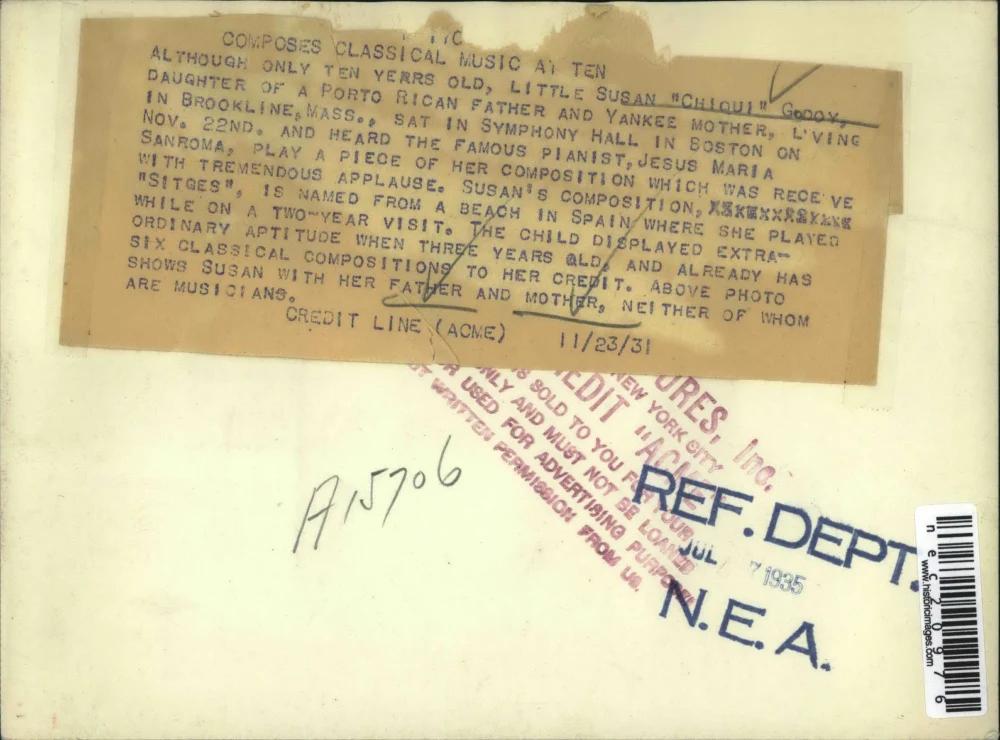 COMPOSES CLASSICAL MUSIC AT TEN
ALTHOUGH ONLY TEN YERRS OLD, LITTLE SUSAN "CHIQUI" GODOY,
DAUGHTER OF A PORTO RICAN FATHER AND YANKEE MOTHER, L'VING
IN BROOKLINE, MASS., SAT IN SYMPHONY HALL IN BOSTON ON
NOV. 22ND. AND HEARD THE FAMOUS PIANIST, JESUS MARIA
SANROMA, PLAY A PIECE OF HER COMPOSITION WHICH WAS RECE'VE
WITH TREMENDOUS APPLAUSE. SUSAN'S COMPOSITION,
"SITGES", IS NAMED FROM A BEACH IN SPAIN WHERE SHE PLAYED
WHILE ON A TWO-YEAR VISIT. THE CHILD DISPLAYED EXTRA-
ORDINARY APTITUDE WHEN THREE YEARS OLD, AND ALREADY HAS
SIX CLASSICAL COMPOSITIONS TO HER CREDIT. ABOVE PHOTO
SHOWS SUSAN WITH HER FATHER AND MOTHER, NEITHER OF WHOM
ARE MUSICIANS.
CREDIT LINE (ACME) 11/23/31
URES, Inc.
NEW YORK CITY
EDIT "ACME"
SOLD TO YOU FOR YOUR
NLY AND MUST NOT BE LOANED
R USED FOR ADVERTISING PURPOSES
WRITTEN PERMISSION FROM US.
A15706
REF. DEPT.
JUL 7 1935
N.E.A.
nec20976
www.historicimages.com